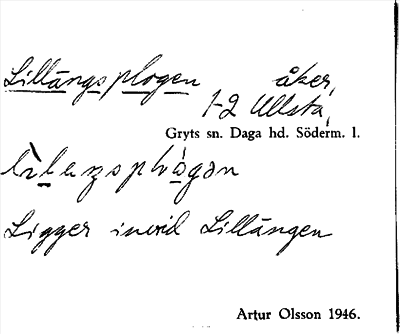 Lillängsplogen åker,
1-2 Ullsta,
Gryts sn. Daga hd. Söderm. l.
Ligger invid Lillängen
Artur Olsson 1946.